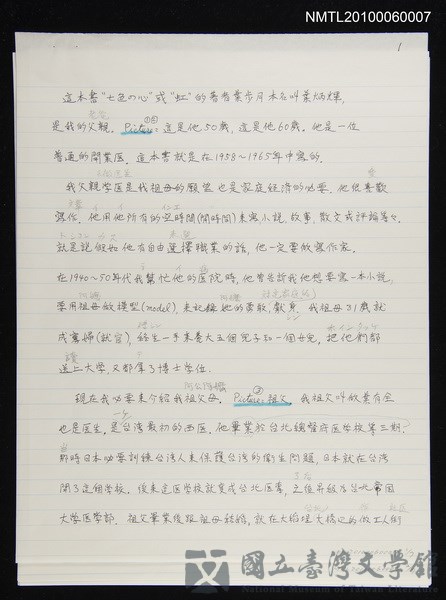 NMTL20100060007
1
這本書"七色の心"或"虹"的著者葉步月本名叫葉炳輝,
是我的父親。Picture: ①② 這是他50歲, 這是他60歲。他是一位
普通的開業医。這本書就是在1958~1965年中寫的。
我父親学医是我祖母的願望也是家庭經濟的必要。他很喜歡
寫作, 他用他所有的空時間(閒時間)來寫小說, 故事, 散文或評論等々.
就是說假如他有自由選擇職業的話, 他一定要做寫作家。
在1940~50年代我幫忙他的医院時, 他曾告訴我他想要寫一本小說,
要用祖母做模型(model), 來記錄她的勇敢, 獻身。我祖母31歲就
成寡婦(就官), 終生一手來養大五個兒子和一個女兒, 把他們都
讀
送上大学, 又都拿了博士學位。
現在我必要來介紹我祖父母。Picture: ③ 祖父。我祖父叫葉有全
也是医生, 是台湾最初的西医。他畢業於台北總督府医学校第三期.
那時日本必要訓練台湾人來保護台湾的衛生問題, 日本就在台湾
開了這個学校, 後來這医学校就變成台北医專, 之後升級为台北帝国
大学医学部. 祖父畢業後跟祖母結婚, 就在大稻埕大橋边為做工人的
國立臺灣文學館
National Museum of Taiwan Literature